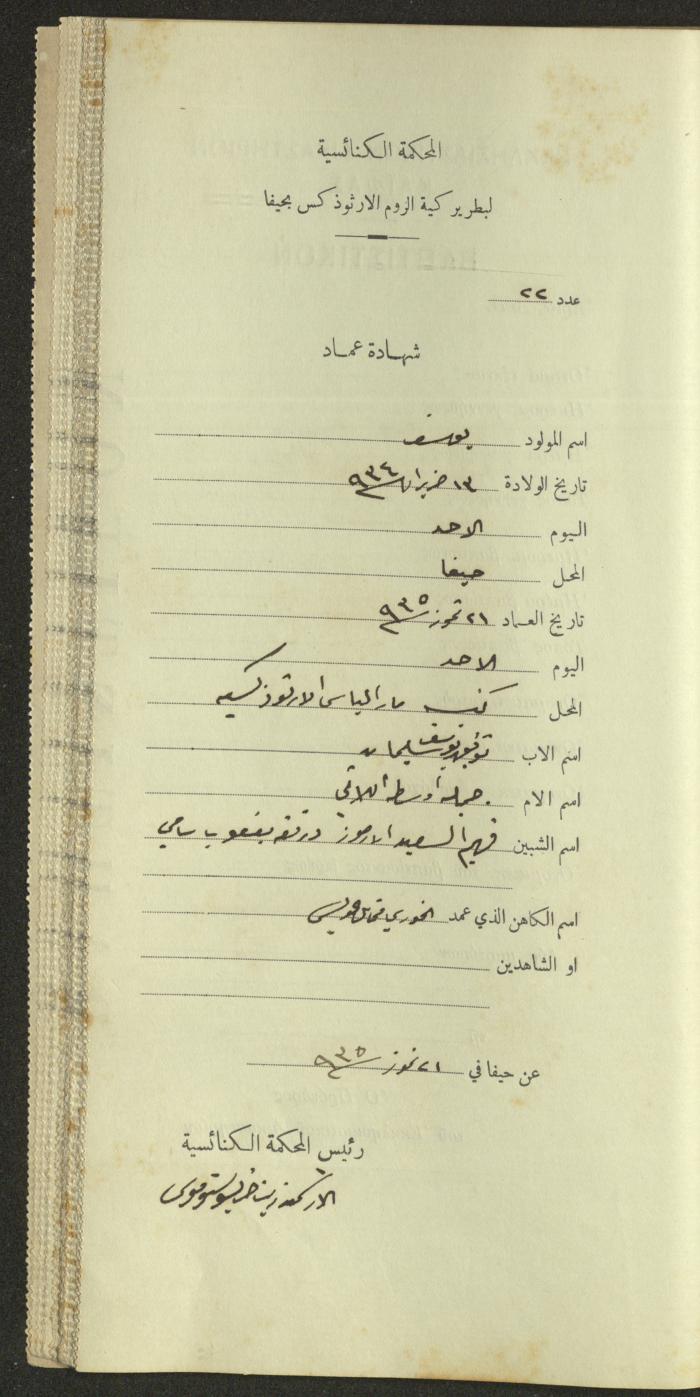 المحكمة الكنائسية
لبطريركية الروم الارثوذكس بحيفا
عدد ٢٢
شهادة عماد
اسم المولود يوسف
تاريخ الولادة ١٣ حزيران ٩٣٤
اليوم الاحد
المحل حيفا
تاريخ العماد ٢١ تموز ٩٣٥
اليوم الاحد
المحل كنيسة مار الياس الارثوذكسيه
اسم الاب توفيق يوسف سليمان
اسم الام جميله
اسم الشبين فهيم السعيد يعقوب سامي
اسم الكاهن الذي عمد الخوري
او الشاهدين
عن حيفا في ٢١ تموز ٩٣٥
رئيس المحكمة الكنائسية